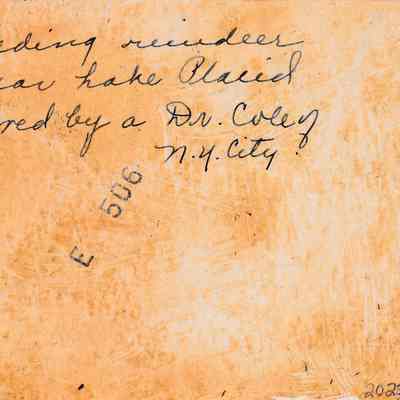 eding reindeer
ear Lake Placid
red by a Dr. Coley
N.Y. City.
E 506
202